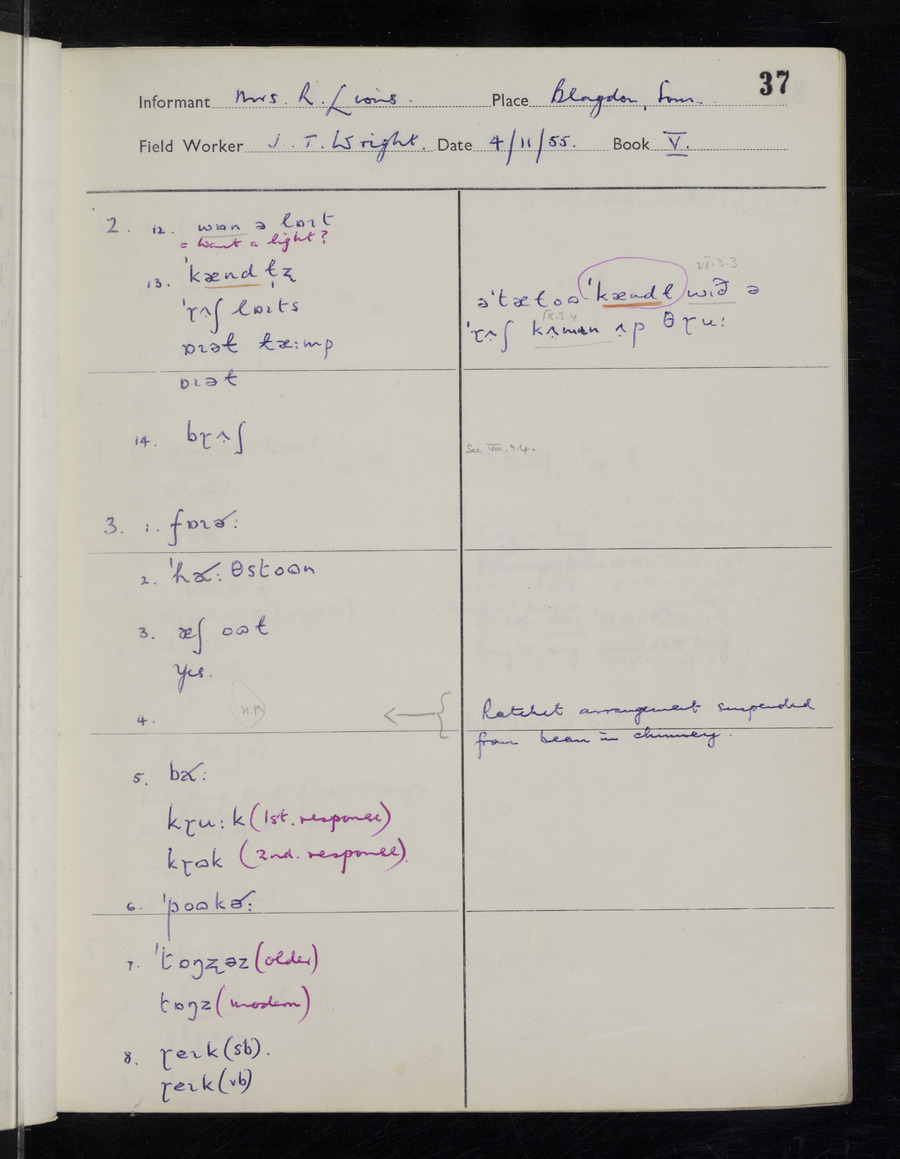 37
Informant Mrs. R. Lyons. Place Blagdon, Som.
Field Worker J. T. Wright. Date 4/11/55. Book V.
2. 12. wɒn ə lɒɪt
= want a light?
13. ˈkænd ɫ̩ʐ
ˈɽʌʃ lɒɪts
ɒɪəɫ læ:mp
ɒɪəɫ
14. bɽʌʃ
3. 1. fɒɪɚ:
2. ˈhɑ˞: θstoʊn
3. æʃ oʊɫ
Yes.
4. n.r.
5. bɑ˞:
kɽu: k (1st. response)
kɽʊk (2nd. response)
6. ˈpoʊkɚ:
7. ˈtɒŋʐəz (older)
tɒŋz (modern)
8. ɽeɪk (sb).
ɽeɪk (vb)
VI.3.3
ˈkændɫ wɪð ə
IX.3.4
ˈɽʌʃ kʌmən ʌp θɽu:
See VIII.9.4.
Ratchet arrangement suspended
from beam in chimney.